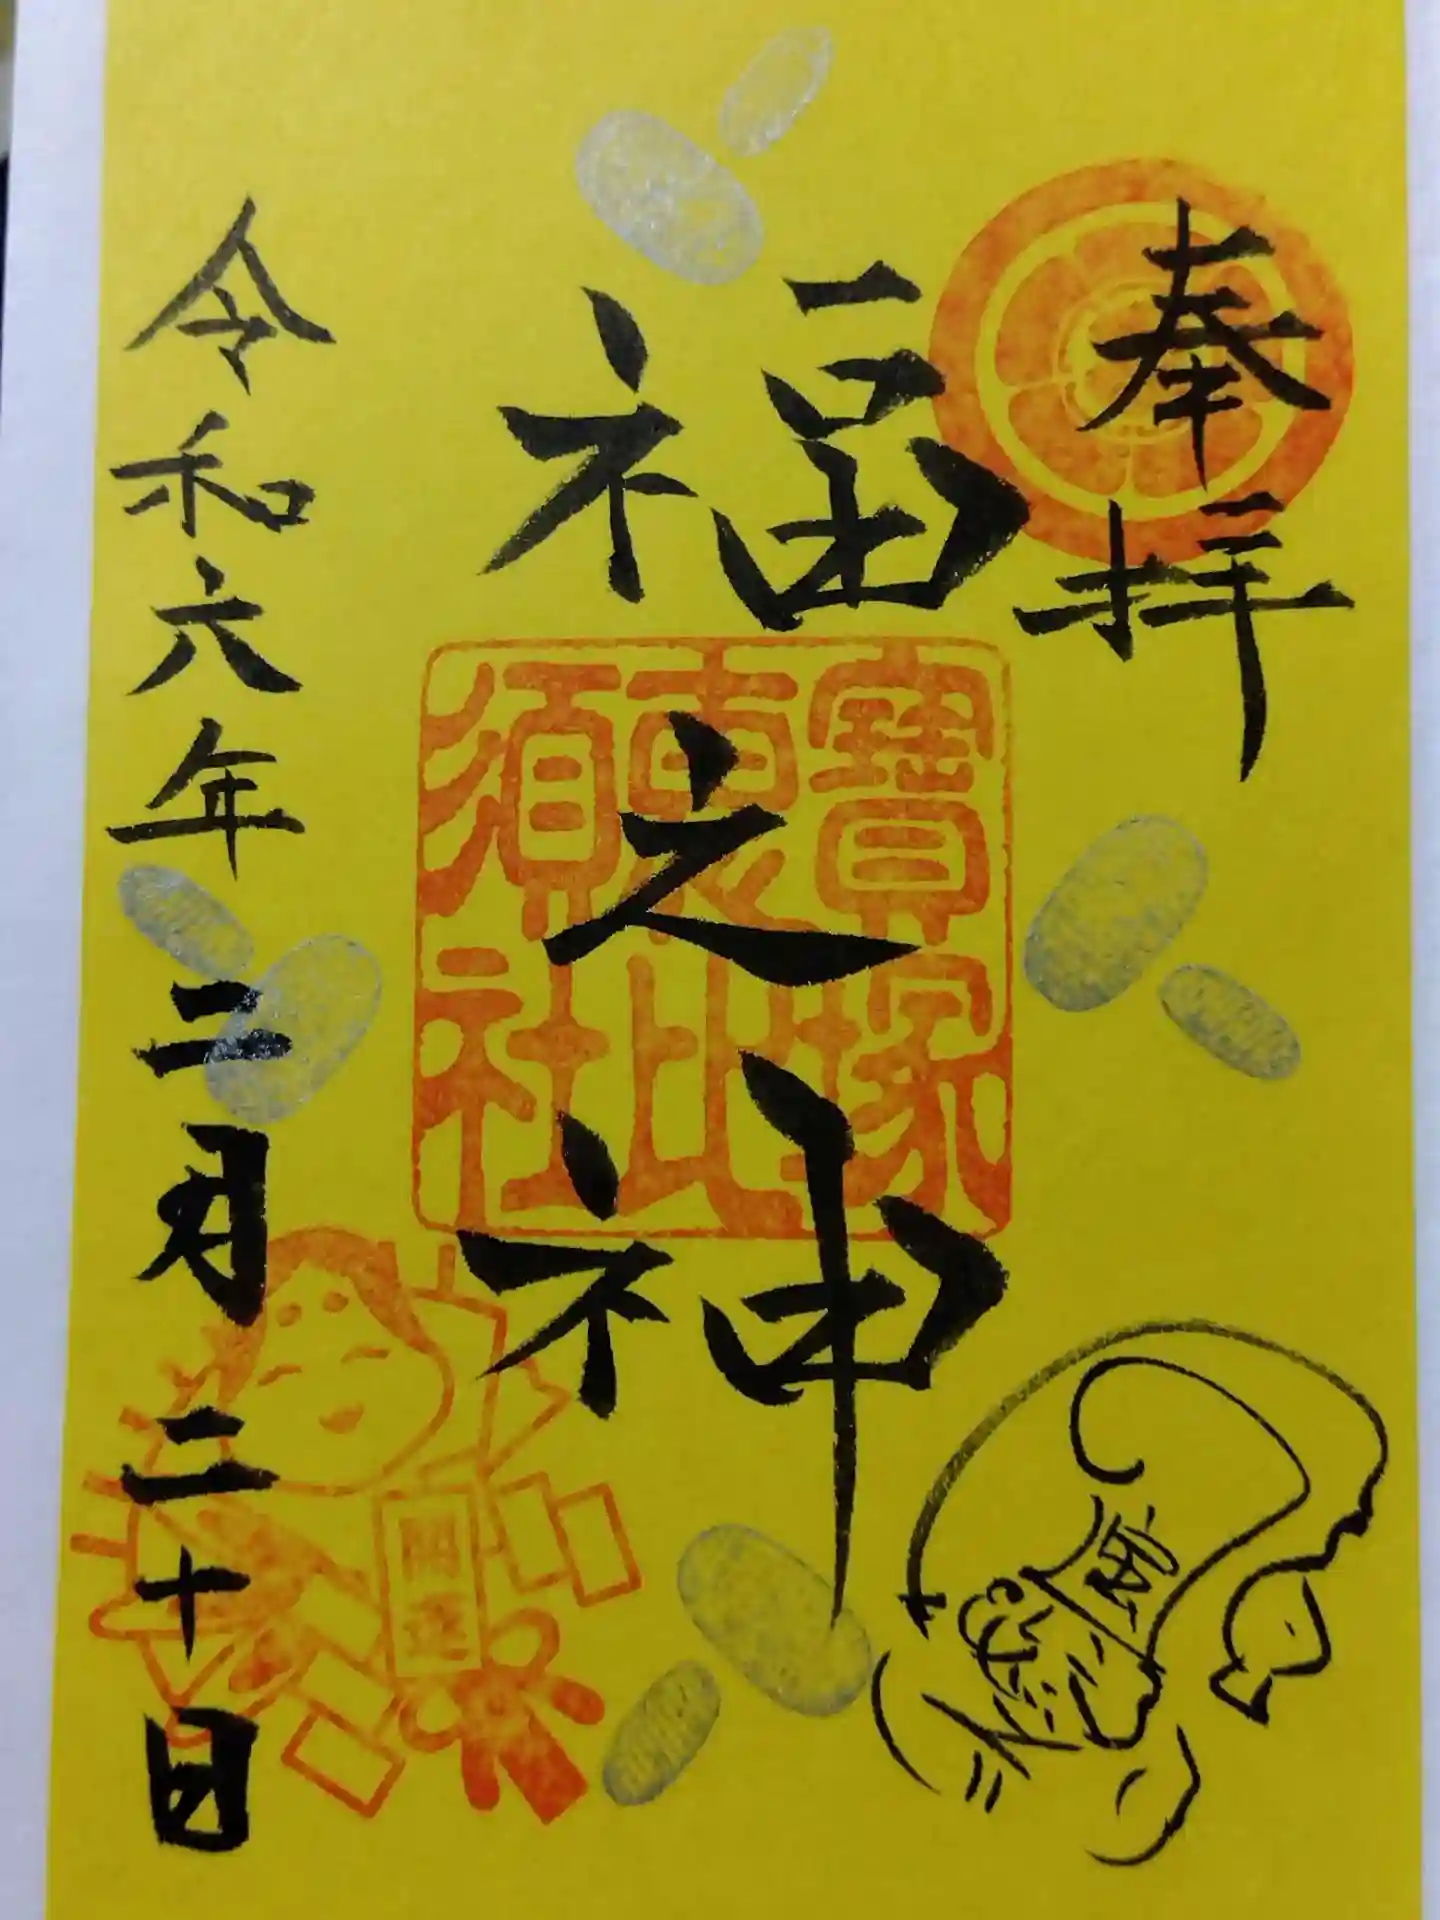 奉拝
福之神
寶塚
恵比
須社
令和六年二月二十日
開運